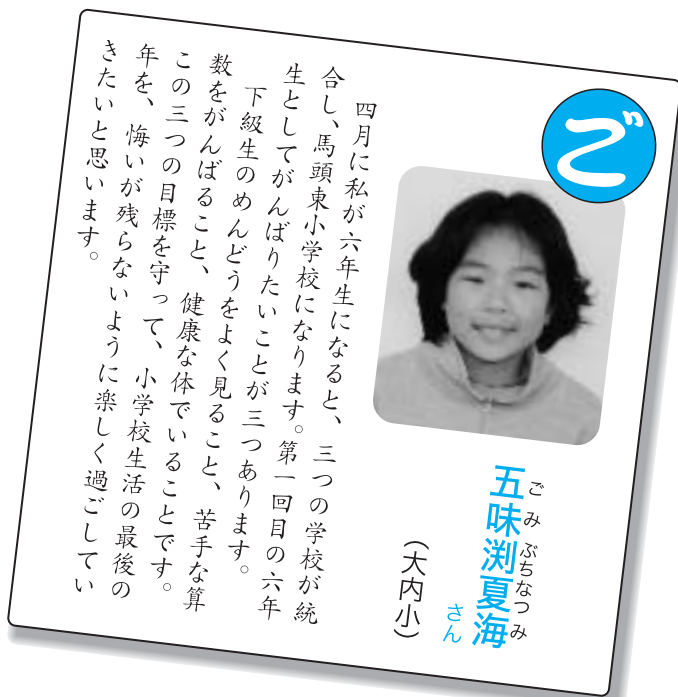 ご
五味渕夏海さん
ごみぶちなつみ
（大内小）
四月に私が六年生になると、三つの学校が統
合し、馬頭東小学校になります。第一回目の六年
生としてがんばりたいことが三つあります。
下級生のめんどうをよく見ること、苦手な算
数をがんばること、健康な体でいることです。
この三つの目標を守って、小学校生活の最後の
年を、悔いが残らないように楽しく過ごしてい
きたいと思います。